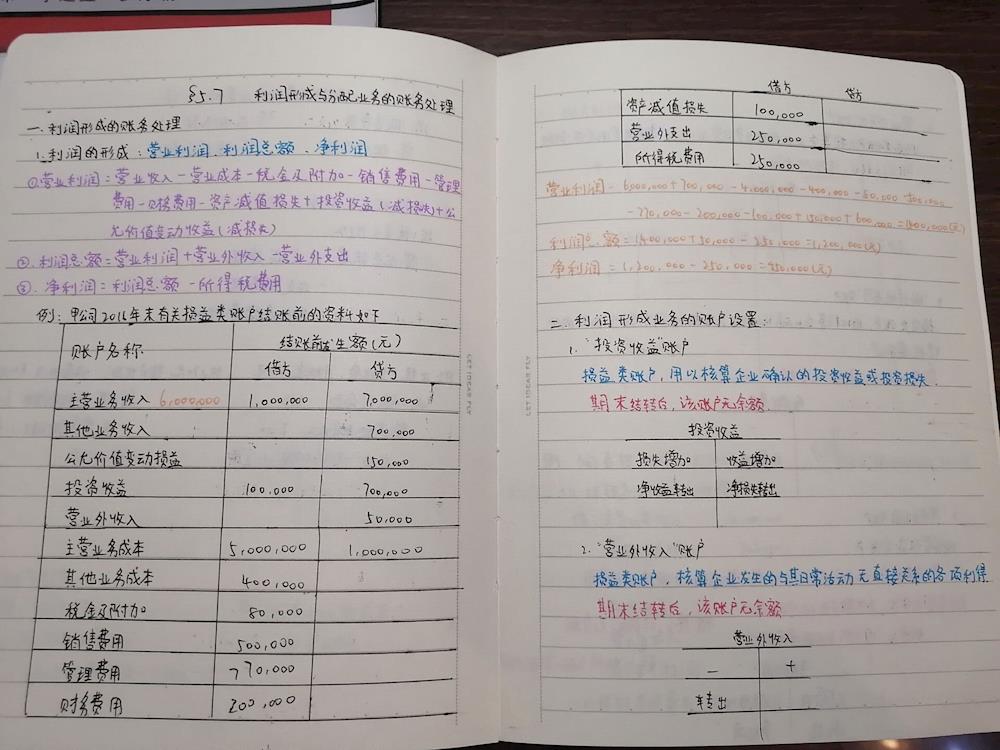 §5.7 利润形成与分配业务的账务处理
一.利润形成的账务处理
1.利润的形成:营业利润.利润总额.净利润
①营业利润=营业收入-营业成本-税金及附加-销售费用-管理
费用-财务费用-资产减值损失+投资收益(减损失)+公
允价值变动收益(减损失)
②.利润总额=营业利润+营业外收入-营业外支出
③.净利润=利润总额-所得税费用
例:甲公司2016年末有关损益类账户结账前的资料如下
账户名称 结账前发生额(元)
借方 贷方
主营业务收入 6,000,000 1,000,000 7,000,000
其他业务收入 700,000
公允价值变动损益 150,000
投资收益 100,000 700,000
营业外收入 50,000
主营业务成本 5,000,000 1,000,000
其他业务成本 400,000
税金及附加 80,000
销售费用 500,000
管理费用 770,000
财务费用 200,000
借方 贷方
资产减值损失 100,000
营业外支出 250,000
所得税费用 250,000
营业利润=6000,000+700,000-4,000,000-400,000-80,000-500,000
-770,000-200,000-100,000+150,000+600,000=1400,000(元)
利润总额=1400,000+50,000-250,000=1,200,000(元)
净利润=1,200,000-250,000=950,000(元)
二.利润形成业务的账户设置:
1."投资收益"账户
损益类账户,用以核算企业确认的投资收益或投资损失.
期末结转后,该账户无余额.
投资收益
损失增加 收益增加
净收益转出 净损失转出
2."营业外收入"账户
损益类账户,核算企业发生的与其日常活动无直接关系的各项利得
期末结转后,该账户无余额
营业外收入
- +
转出
LET IDEAS FLY
LET IDEAS FLY